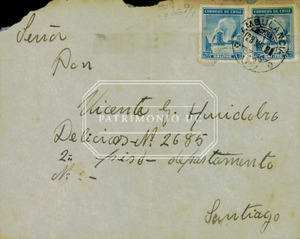 CORREOS DE CHILE CORREOS DE CHILE
Señor
Don
Vicente G. Huidobro
Delicias Nº 2685
2º piso - departamento
Nº 2-
Santiago
PATRIMONIO DI